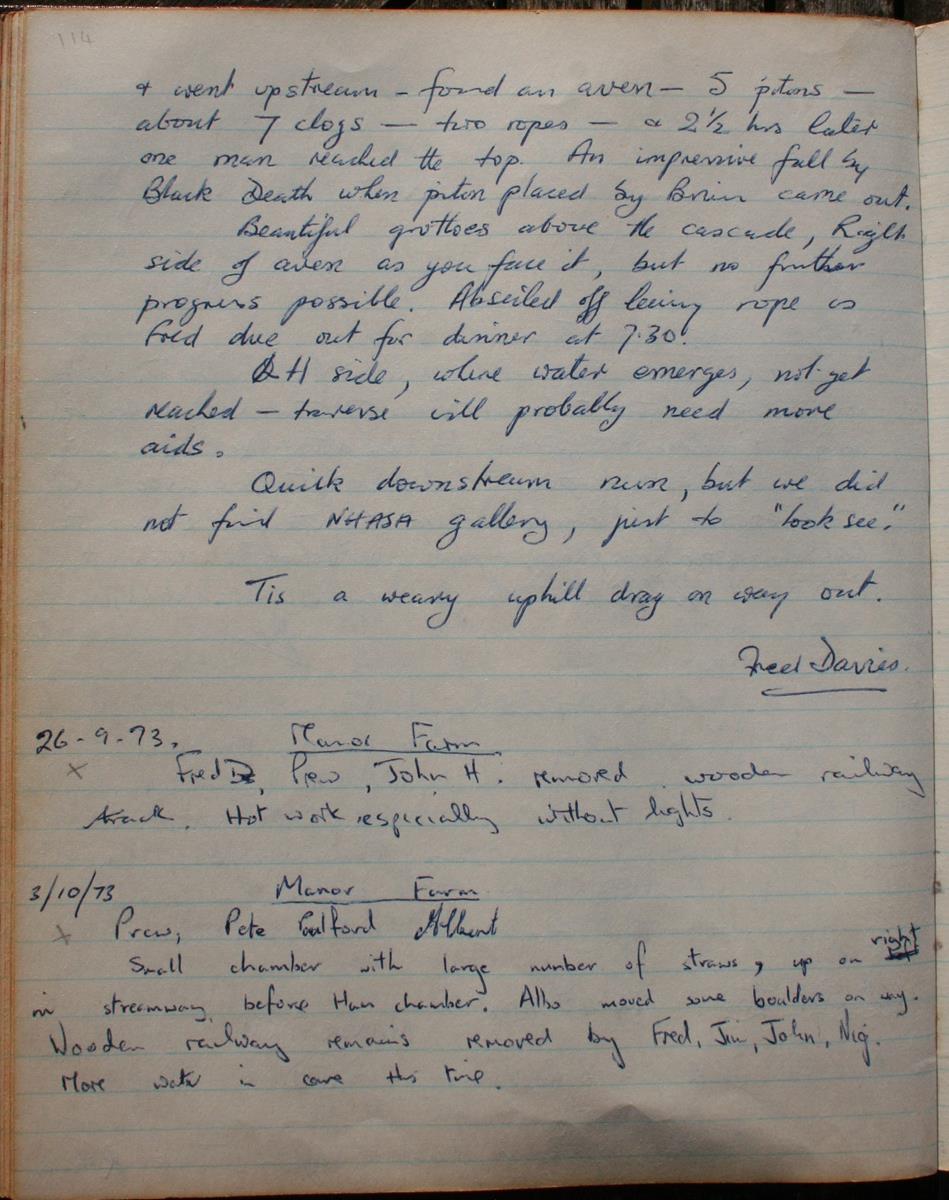 114
& went upstream - found an aven - 5 pitons -
about 7 clogs - two ropes - & 2½ hrs later
one man reached the top. An impressive fall by
Black Death when piton placed by Brian came out.
Beautiful grottoes above the cascade, Right
side of aven as you face it, but no further
progress possible. Abseiled off leaving rope as
Fred due out for dinner at 7.30!
H side, where water emerges, not yet
reached - traverse will probably need more
aids.
Quick downstream run, but we did
not find NHASA gallery, just to "look see."
Tis a weary uphill drag on way out.
Fred Davies.
26-9-73. Manor Farm
x Fred D, Prew, John H. removed wooden railway
track. Hot work especially without lights.
3/10/73 Manor Farm
x Prew, Pete Pulford Albert
Small chamber with large number of straws, up on right
in streamway before Ham chamber. Also moved some boulders on way.
Wooden railway remains removed by Fred, Jim, John, Nig.
More water in cave this time.